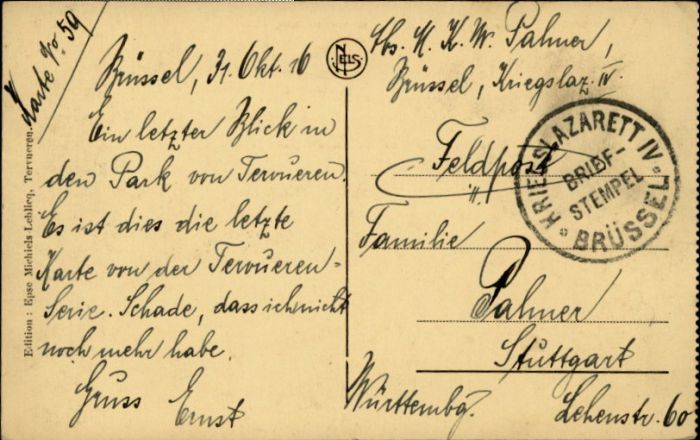 Karte No. 59
Brüssel, 31. Okt. 16
Ein letzter Blick in
den Park von Tervueren.
Es ist dies die letzte
Karte von der Tervueren-
Serie. Schade, dass ich nicht
noch mehr habe.
Gruss Ernst
Edition: Epse Michiels-Leblicq, Tervueren.
NELS
Abs. K. W. Palmer,
Brüssel, Kriegslaz. IV.
Feldpost
Familie
Palmer
Stuttgart
Württembg. Lehenstr. 60
KRIEGSLAZARETT IV
BRIEF-
STEMPEL
BRÜSSEL